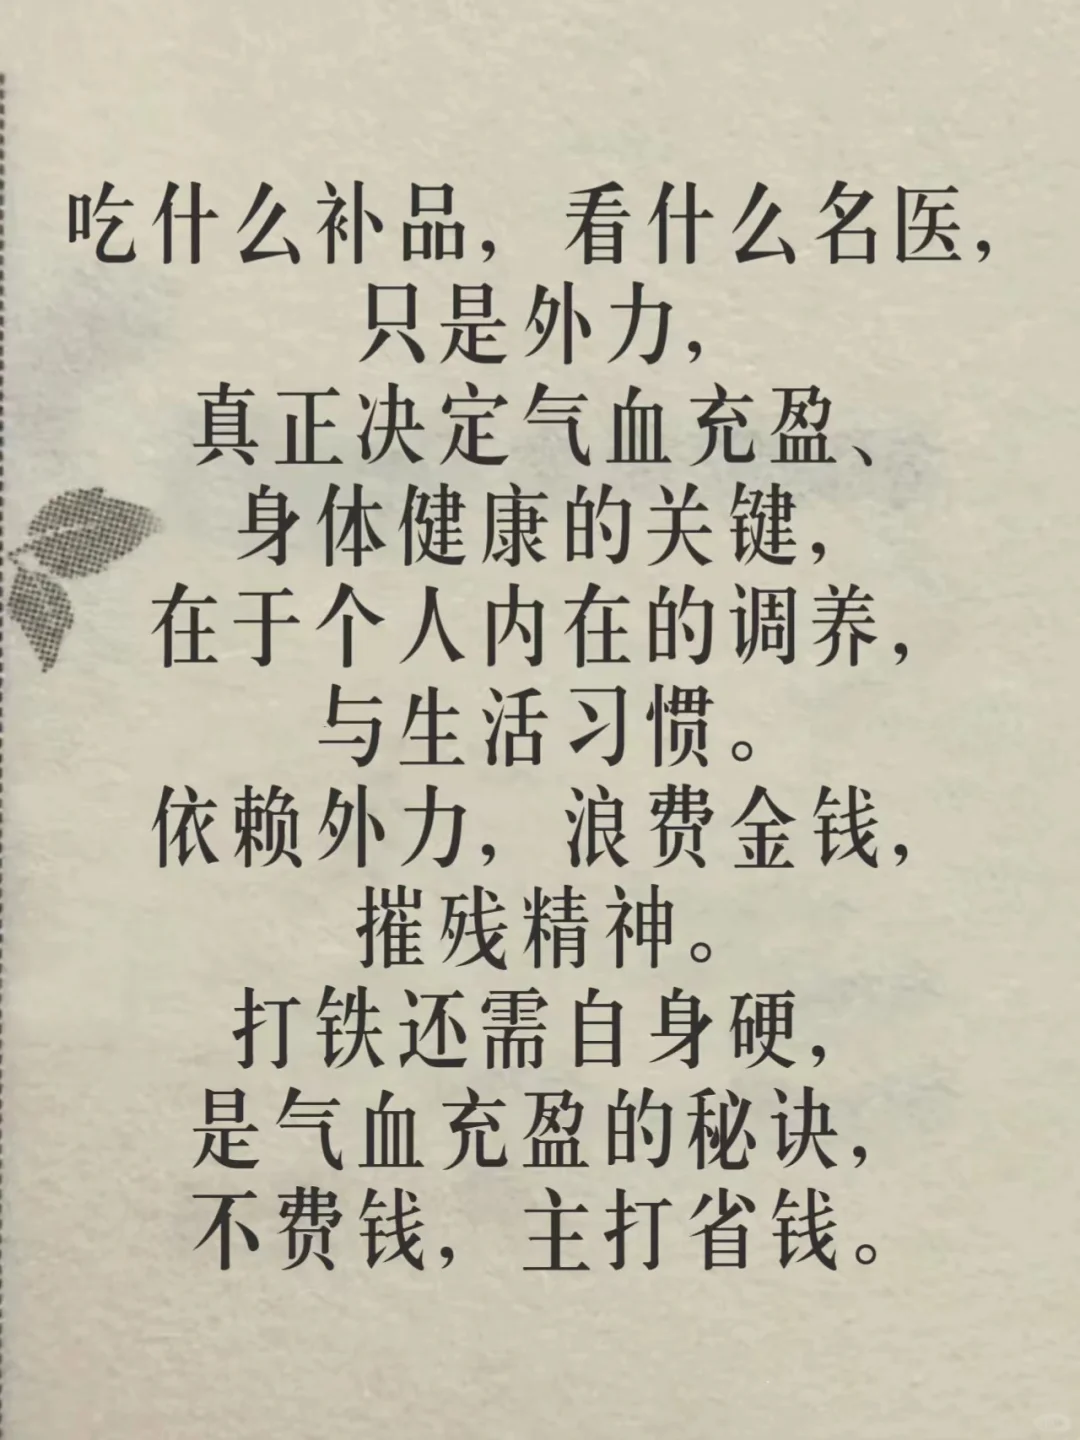 吃什么补品，看什么名医，
只是外力，
真正决定气血充盈、
身体健康的关键，
在于个人内在的调养，
与生活习惯。
依赖外力，浪费金钱，
摧残精神。
打铁还需自身硬，
是气血充盈的秘诀，
不费钱，主打省钱。